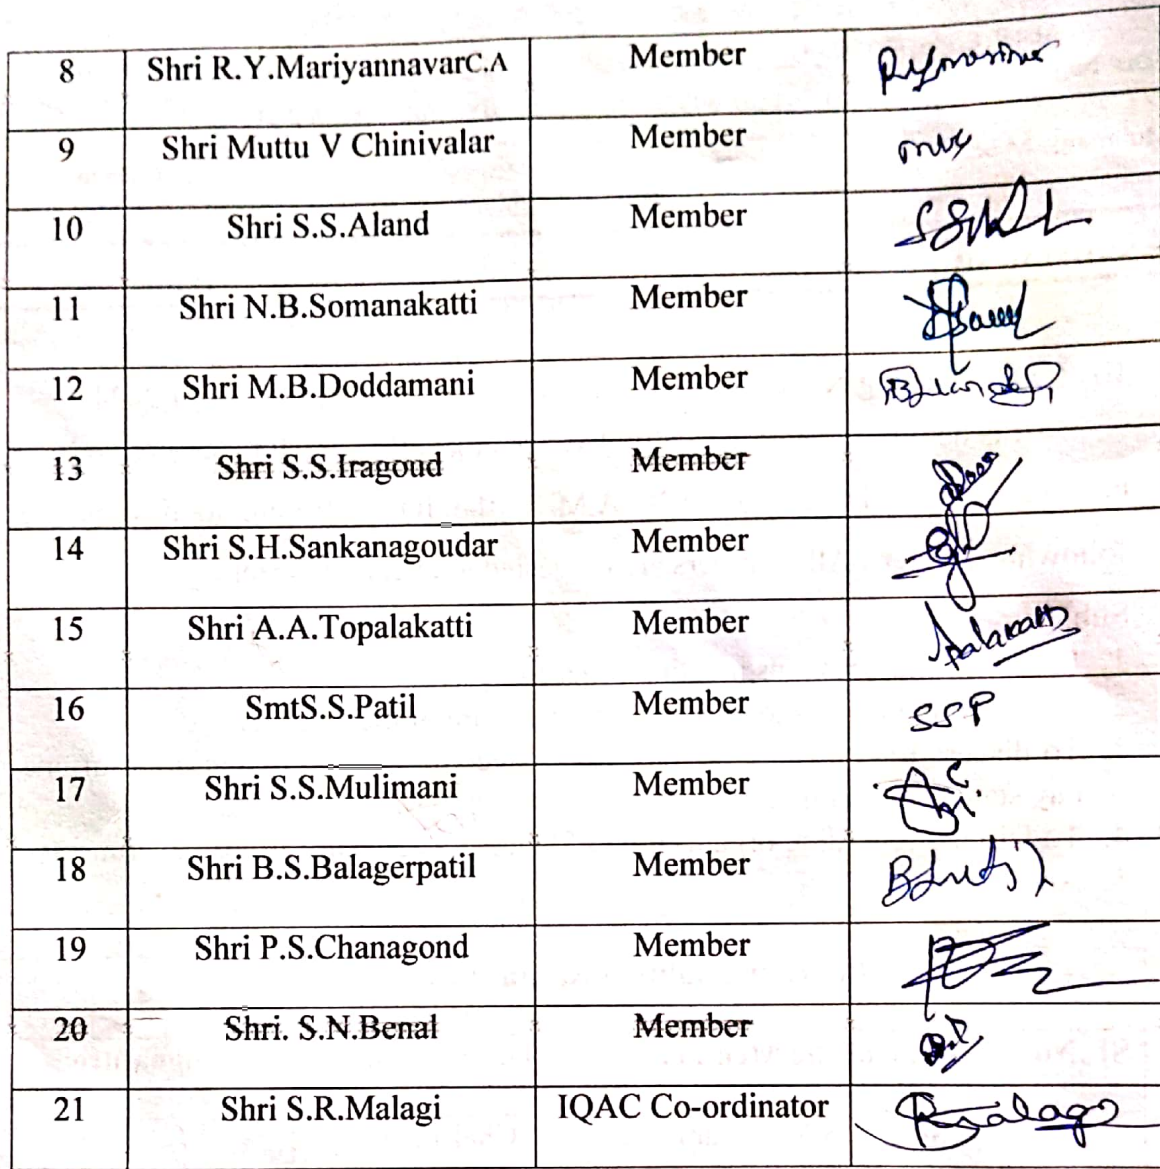 8 Shri R.Y.MariyannavarC.A Member
9 Shri Muttu V Chinivalar Member
10 Shri S.S.Aland Member
11 Shri N.B.Somanakatti Member
12 Shri M.B.Doddamani Member
13 Shri S.S.Iragoud Member
14 Shri S.H.Sankanagoudar Member
15 Shri A.A.Topalakatti Member
16 SmtS.S.Patil Member SSP
17 Shri S.S.Mulimani Member
18 Shri B.S.Balagerpatil Member
19 Shri P.S.Chanagond Member
20 Shri. S.N.Benal Member
21 Shri S.R.Malagi IQAC Co-ordinator